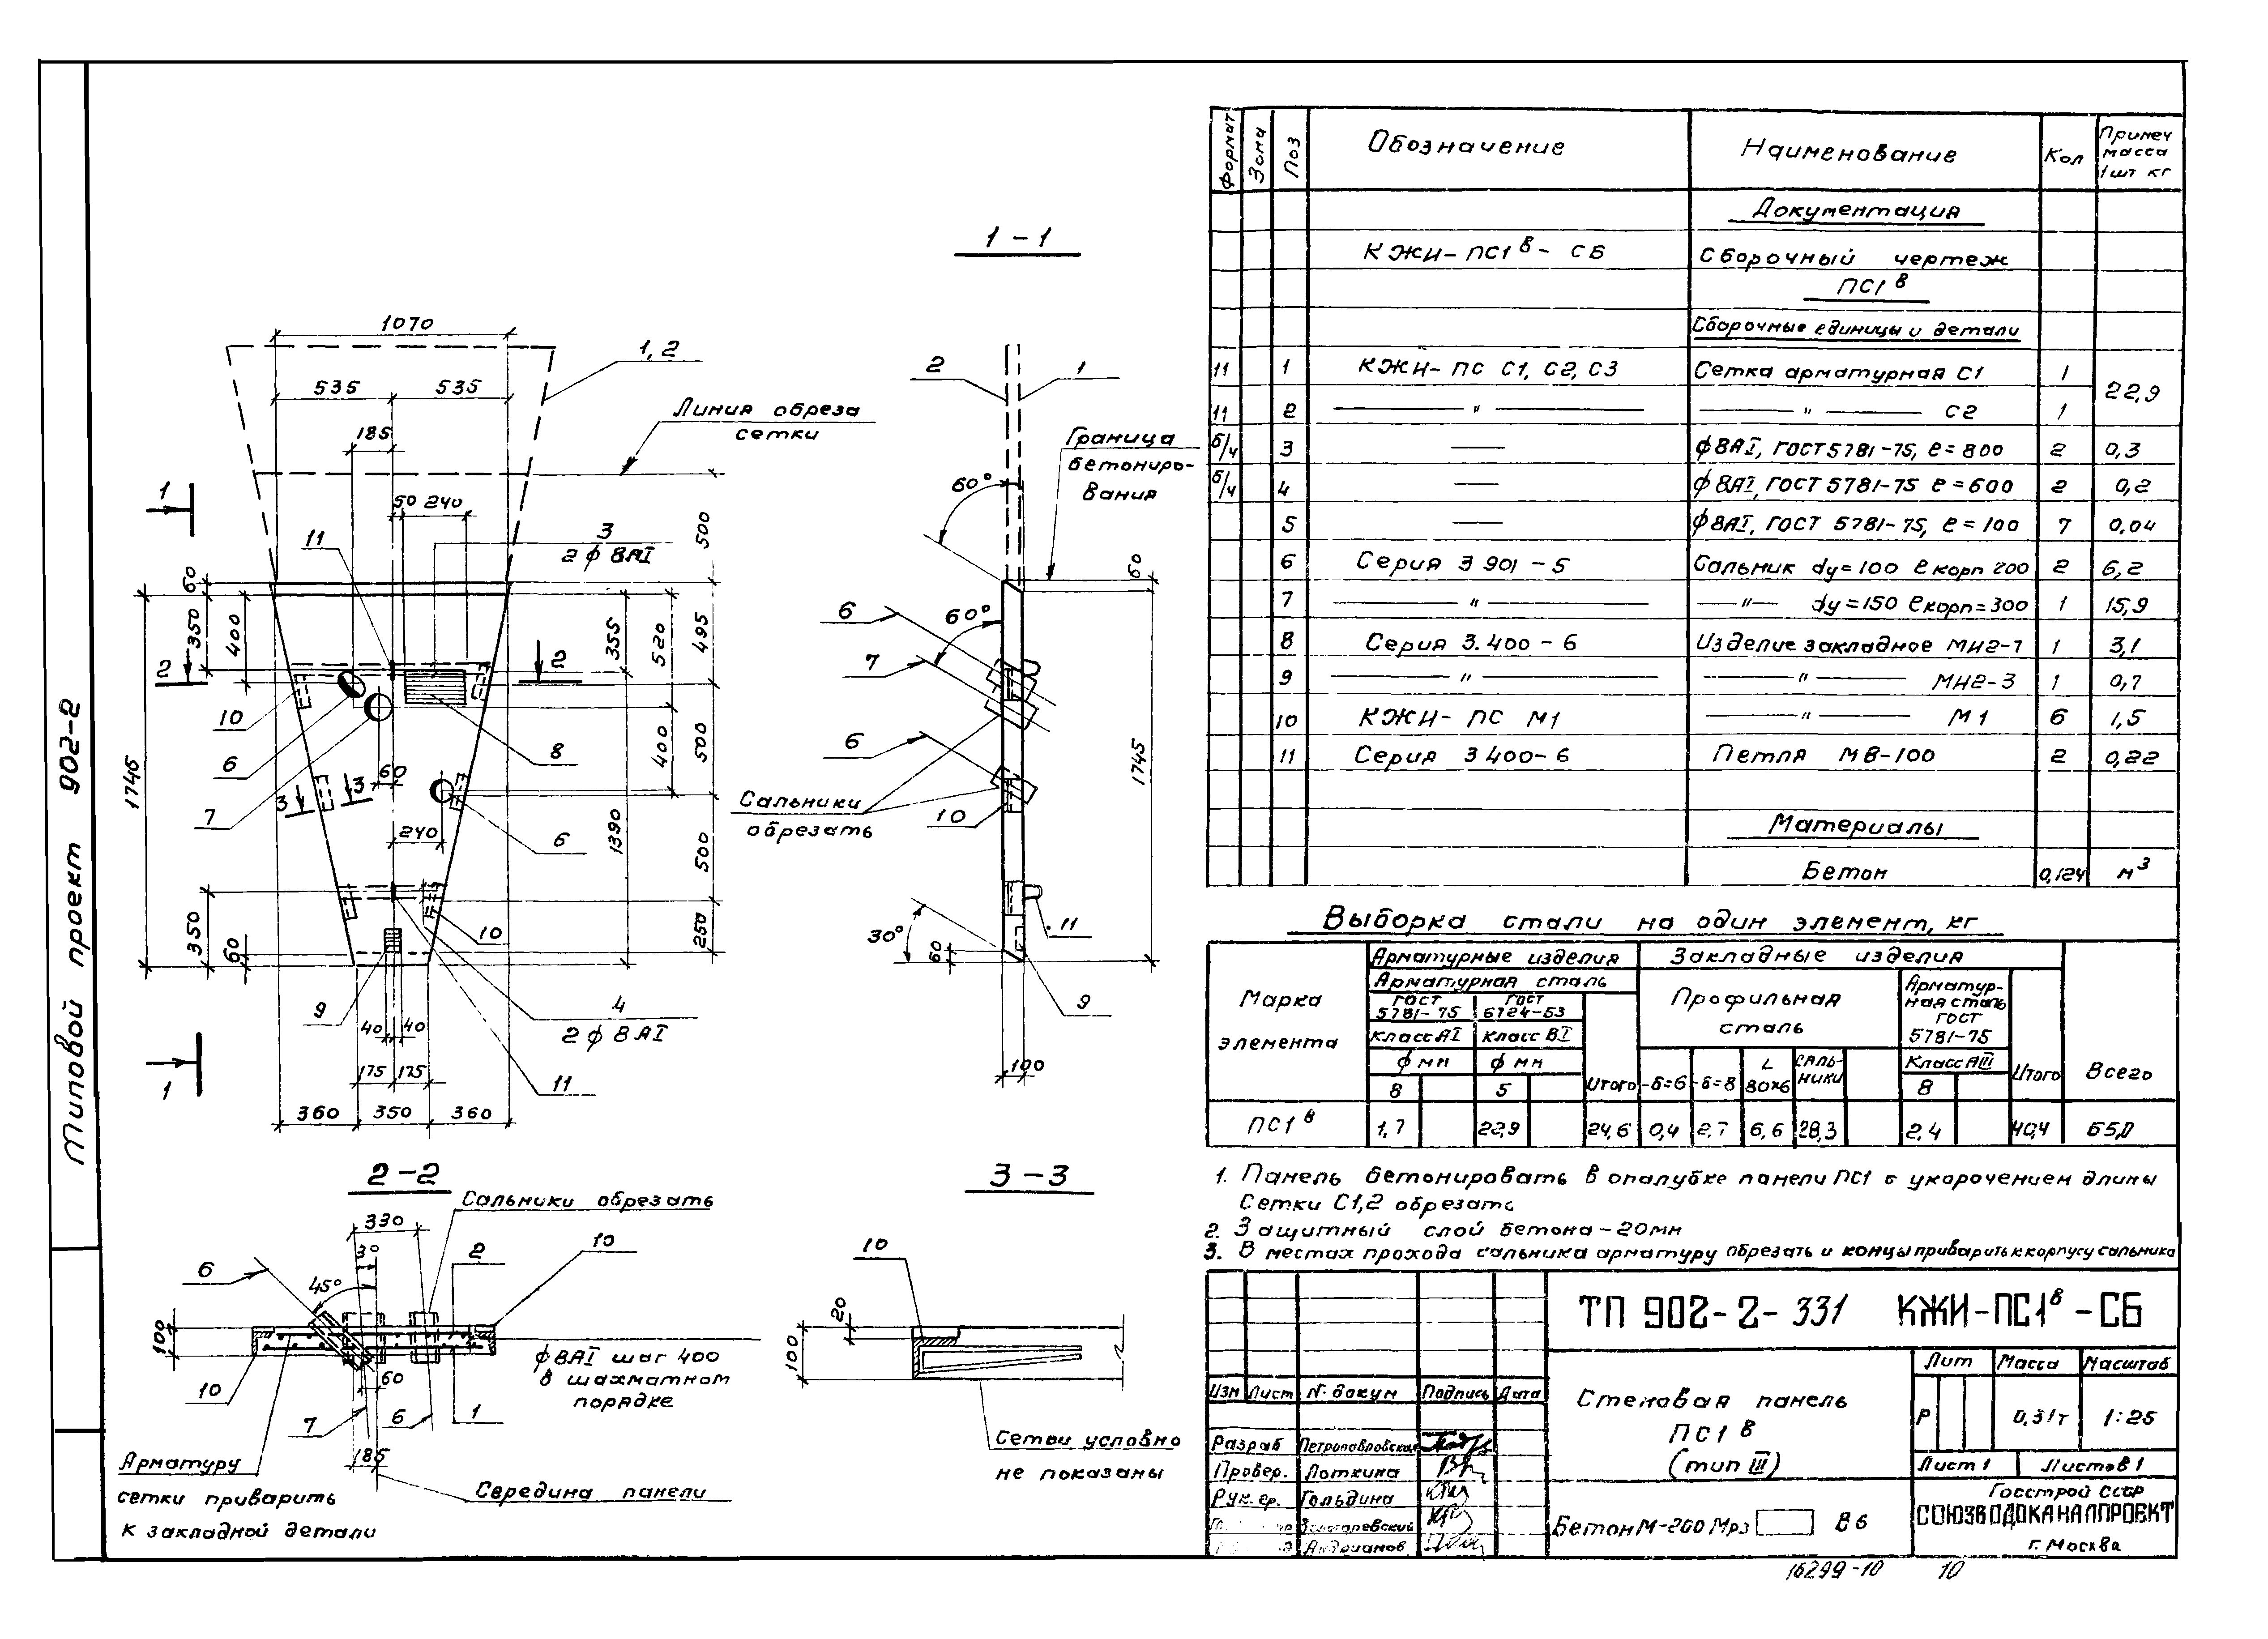 Типовой проект 902-2
1070
535 535
185
1, 2
Линия обреза
сетки
50 240
3
2 ф 8 АI
11
1
2 2
60
350
400
355
520
495
500
1745
10
6
7
8
60
3 3
400
500
1390
240
6
350
60
10
500
250
9
4
2 ф 8 АI
40 40
11
175 175
1
360 350 360
1 - 1
2 1
Граница
бетониро-
вания
60°
60
6
60°
7
6
Сальники
обрезать
10
1745
30°
60
11
9
100
2 - 2
Сальники обрезать
330
30
2
10
6
45°
100
10
60
7
6
1
185
ф 8 АI шаг 400
в шахматном
порядке
Арматуру
сетки приварить
к закладной детали
Середина панели
3 - 3
10
20
100
Сетки условно
не показаны
Формат Зона Поз Обозначение Наименование Кол Примеч масса 1 шт кг
Документация
КЖИ- ПС1 в - СБ Сборочный чертеж
ПС1 в
Сборочные единицы и детали
11 1 КЖИ- ПС С1, С2, С3 Сетка арматурная С1 1 22,9
11 2 " " С2 1
б/ч 3 — ф 8 АI, ГОСТ 5781-75, ℓ = 800 2 0,3
б/ч 4 — ф 8 АI, ГОСТ 5781-75 ℓ = 600 2 0,2
5 — ф 8 АI, ГОСТ 5781-75, ℓ = 100 7 0,04
6 Серия 3 901 - 5 Сальник dу = 100 ℓ корп 200 2 6,2
7 " " dу = 150 ℓ корп = 300 1 15,9
8 Серия 3.400 - 6 Изделие закладное МН2-7 1 3,1
9 " " МН2-3 1 0,7
10 КЖИ- ПС М1 " М1 6 1,5
11 Серия 3 400- 6 Петля МВ-100 2 0,22
Материалы
Бетон 0,124 м³
Выборка стали на один элемент, кг
Марка элемента
Арматурные изделия Закладные изделия
Арматурная сталь
Профильная сталь
Арматур-
ная сталь
ГОСТ
5781-75
ГОСТ 5781-75 ГОСТ 6724-53
Класс АI Класс ВI Класс АIII
ф мм ф мм
8 5 Итого -δ=6 -δ=8 L 80×6 Саль-ники 8 Итого Всего
ПС1 в 1,7 22,9 24,6 0,4 2,7 6,6 28,3 2,4 40,4 65,0
1. Панель бетонировать в опалубке панели ПС1 с укорочением длины
Сетки С1,2 обрезать
2. Защитный слой бетона - 20 мм
3. В местах прохода сальника арматуру обрезать и концы приварить к корпусу сальника
ТП 902-2-331 КЖИ-ПС1 в -СБ
Изм Лист N. докум Подпись Дата
Стеновая панель
ПС1 в
(тип III)
Лит Масса Масштаб
Р 0,31т 1:25
Лист 1 Листов 1
Разраб Петропавловская
Провер. Лоткина
Рук. гр. Гольдина
Андрианов
Бетон М-200 Мрз В 6
Госстрой СССР
СОЮЗВОДОКАНАЛПРОЕКТ
г. Москва
16299-10 10